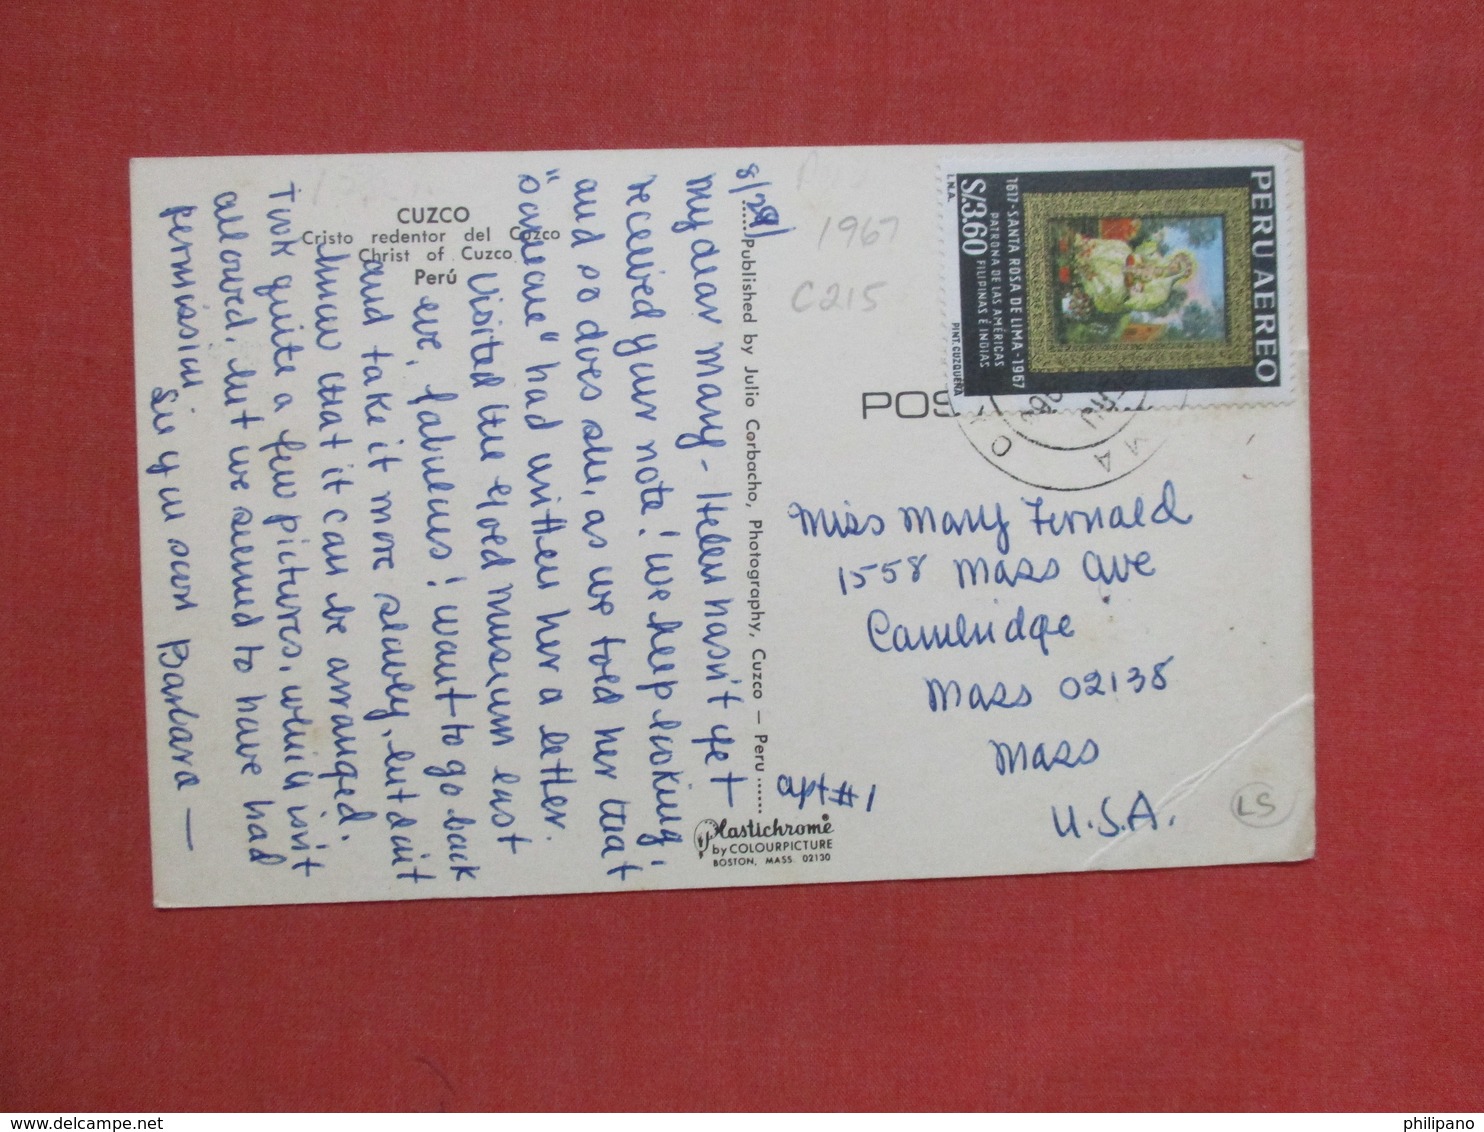 CUZCO
Cristo redentor del Cuzco
Christ of Cuzco
Perú
8/29/
My dear Mary - Helen hasn't yet
received your note! We keep looking,
and so does she, as we told her that
"someone" had written her a letter.
Visited the gold museum last
eve, fabulous! Want to go back
and take it more slowly, but don't
know that it can be arranged.
Took quite a few pictures, which isn't
allowed, but we seemed to have had
permission
See you soon Barbara —
Published by Julio Corbacho, Photography, Cuzco — Peru
Plastichrome®
by COLOURPICTURE
BOSTON, MASS. 02130
1967
C215
PERU AEREO
1617-SANTA ROSA DE LIMA-1967
PATRONA DE LAS AMÉRICAS
FILIPINAS É INDIAS
S/.3.60
I.N.A.
PINT. CUZQUEÑA
POS
Miss Mary Fernald
1558 Mass Ave
Cambridge
Mass 02138
Mass
U.S.A.
apt #1
LS
delcampe.net
philipano